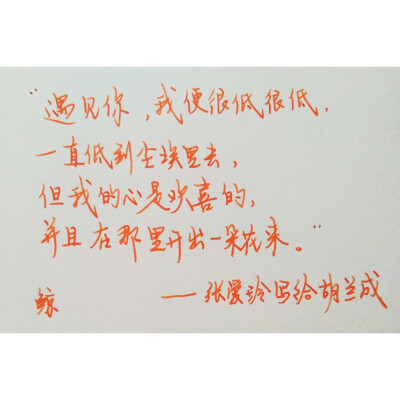 “遇见你，我便很低很低，
一直低到尘埃里去，
但我的心是欢喜的，
并且在那里开出一朵花来。”
鲸
——张爱玲写给胡兰成